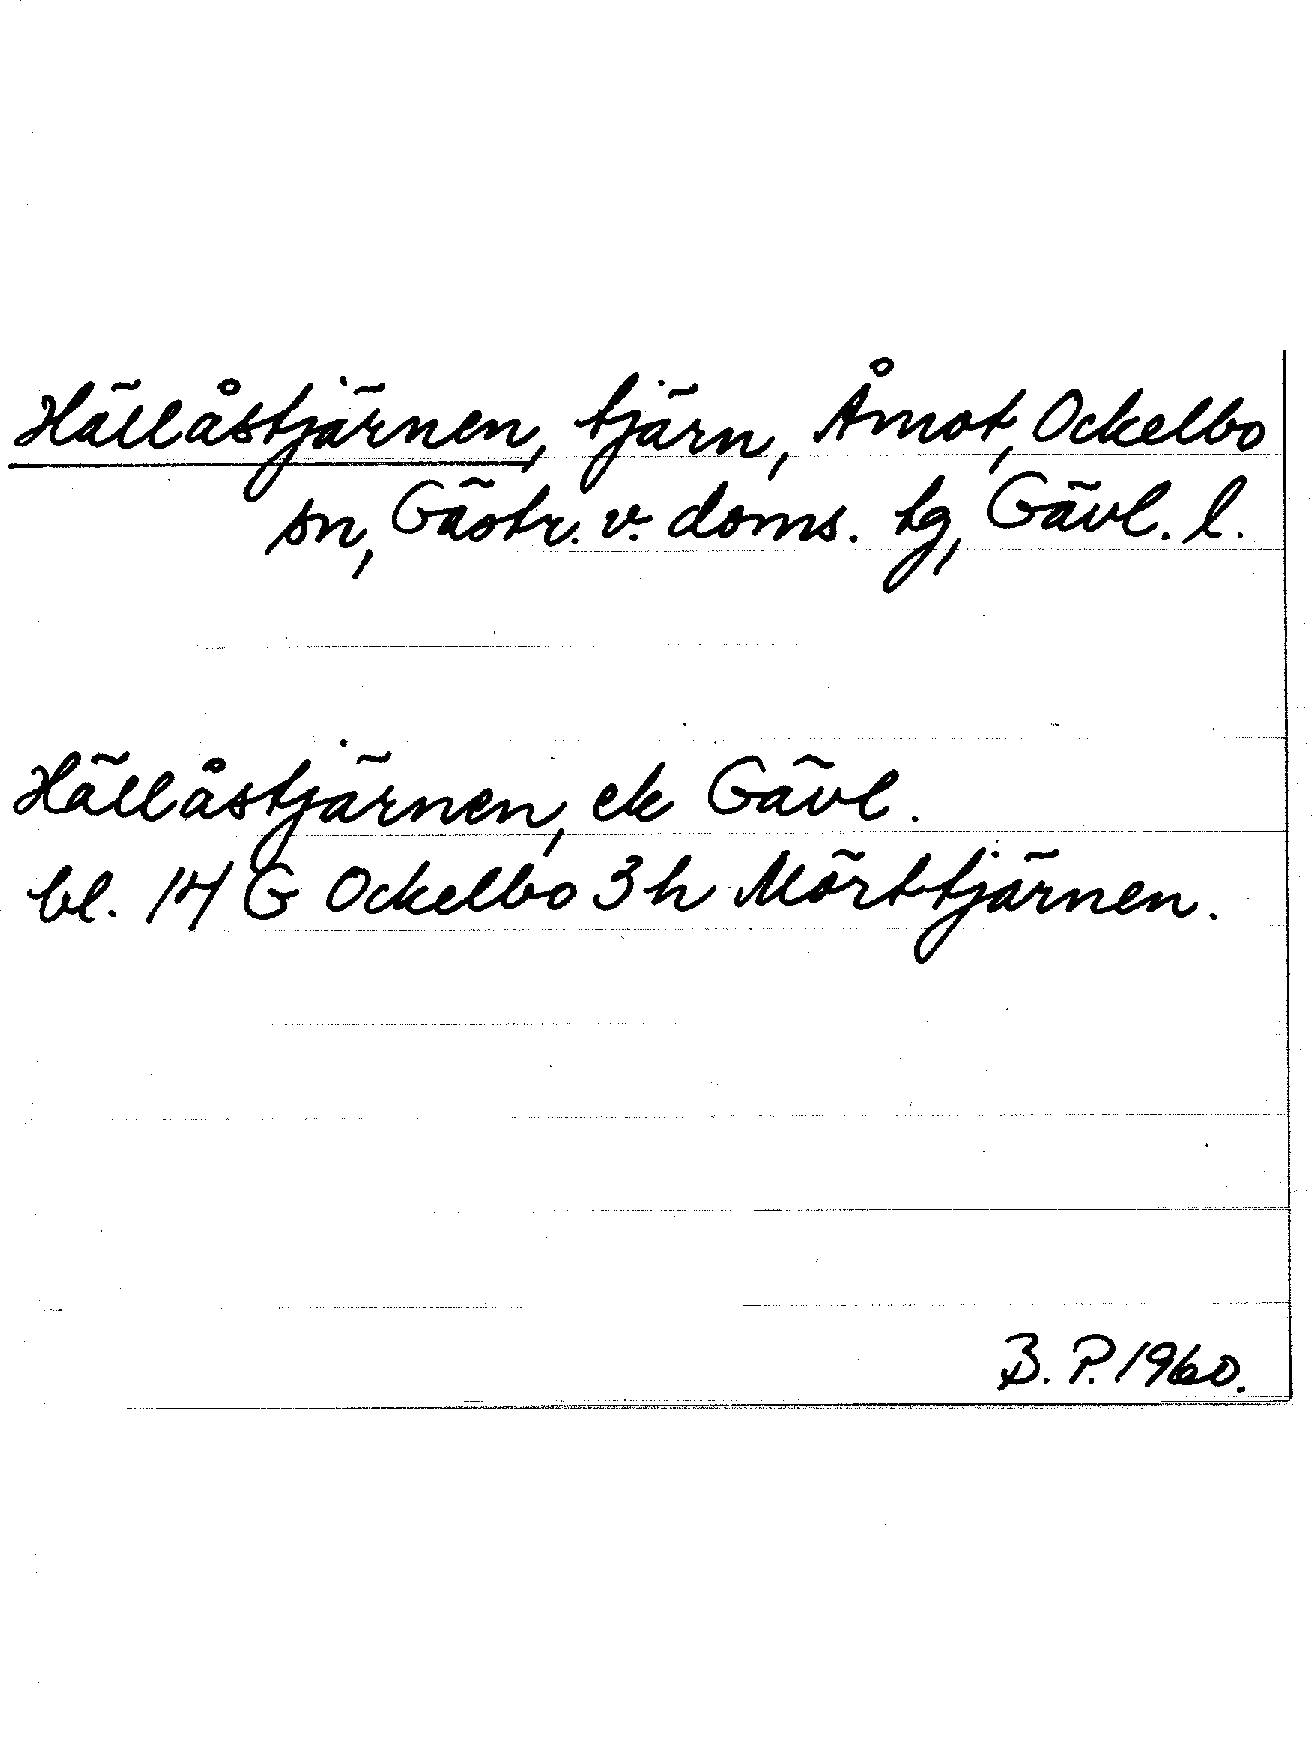 Hällåstjärnen, tjärn, Åmot, Ockelbo
sn, Gästr. v. doms. tg, Gävl. l.
Hällåstjärnen, ek Gävl.
bl. 14 G Ockelbo 3h Mörttjärnen.
B. P. 1960.